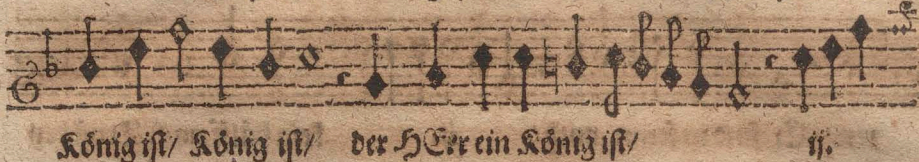 König ist/ König ist/ der HErr ein König ist/ ij.